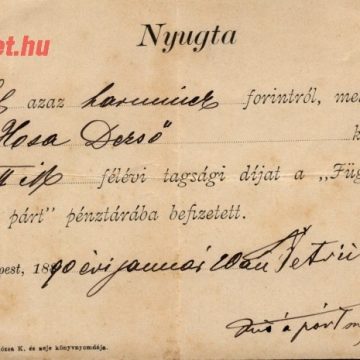 et.hu
Nyugta
azaz harmincz forintról, me
Hosa Dezső k
félévi tagsági díjat a „Füg
párt" pénztárába befizetett.
pest, 1890 évi január
a párt
ózsa K. és neje könyvnyomdája.